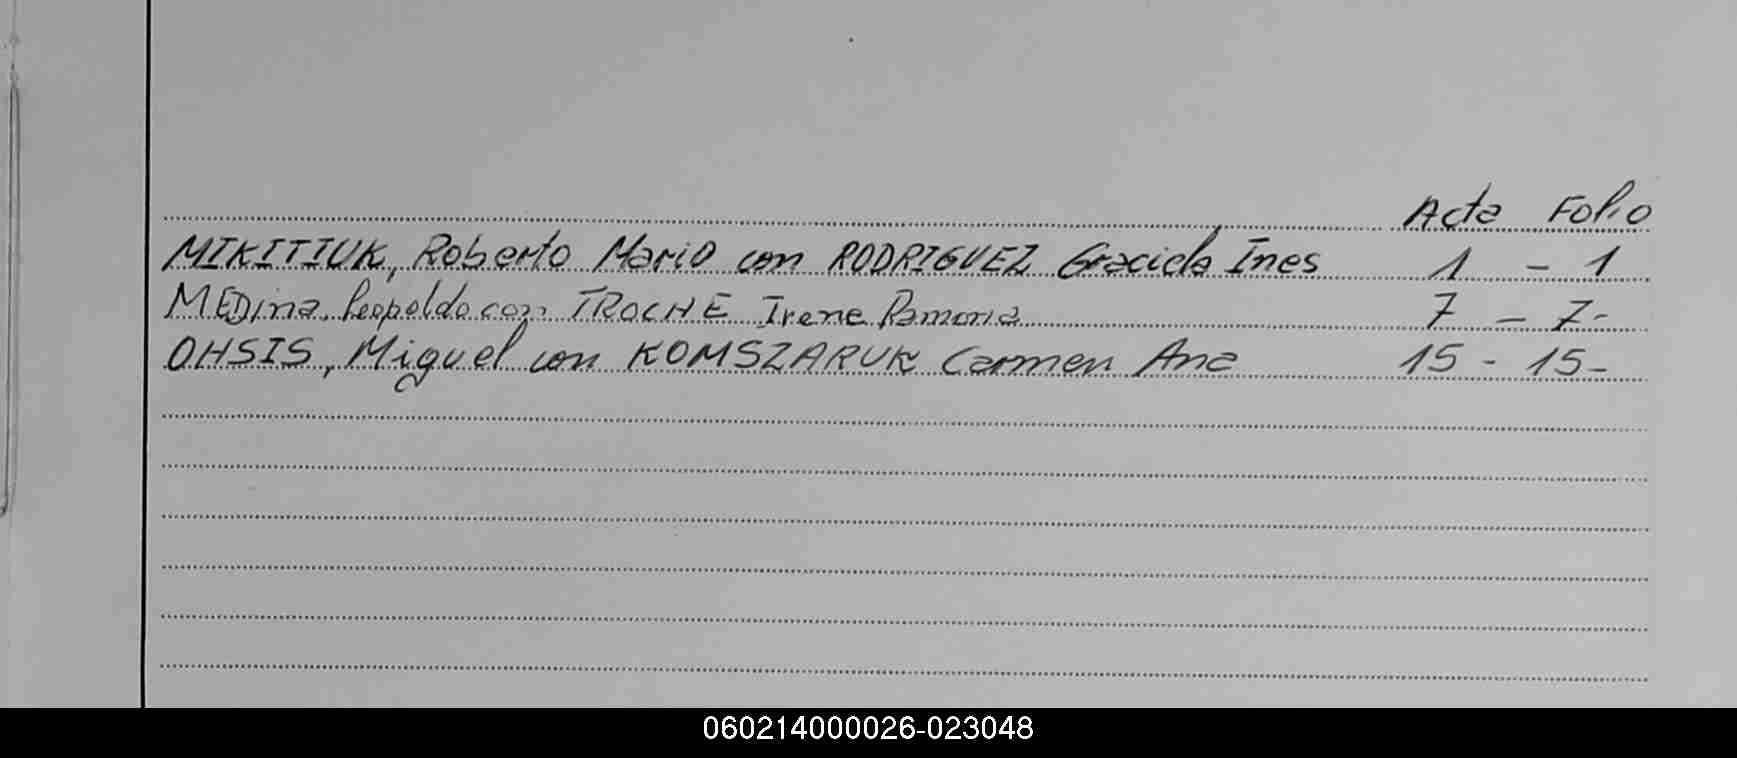 Acta Folio
MIKITIUK, Roberto Mario con RODRIGUEZ Graciela Ines 1 - 1
MEDina, Leopoldo con TROCHE Irene Ramona 7 - 7-
OHSIS, Miguel con KOMSZARUK Carmen Ana 15 - 15-
060214000026-023048